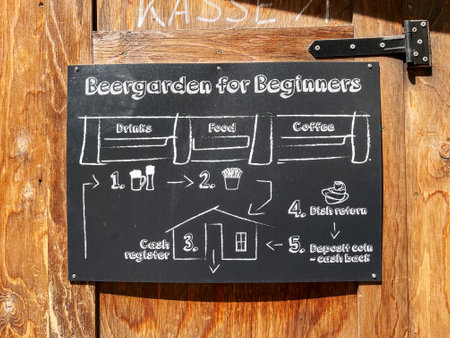 KASSE 1
Beergarden for Beginners
Drinks Food Coffee
1. 2.
4. Dish return
3. Cash register
5. Deposit coin - cash back